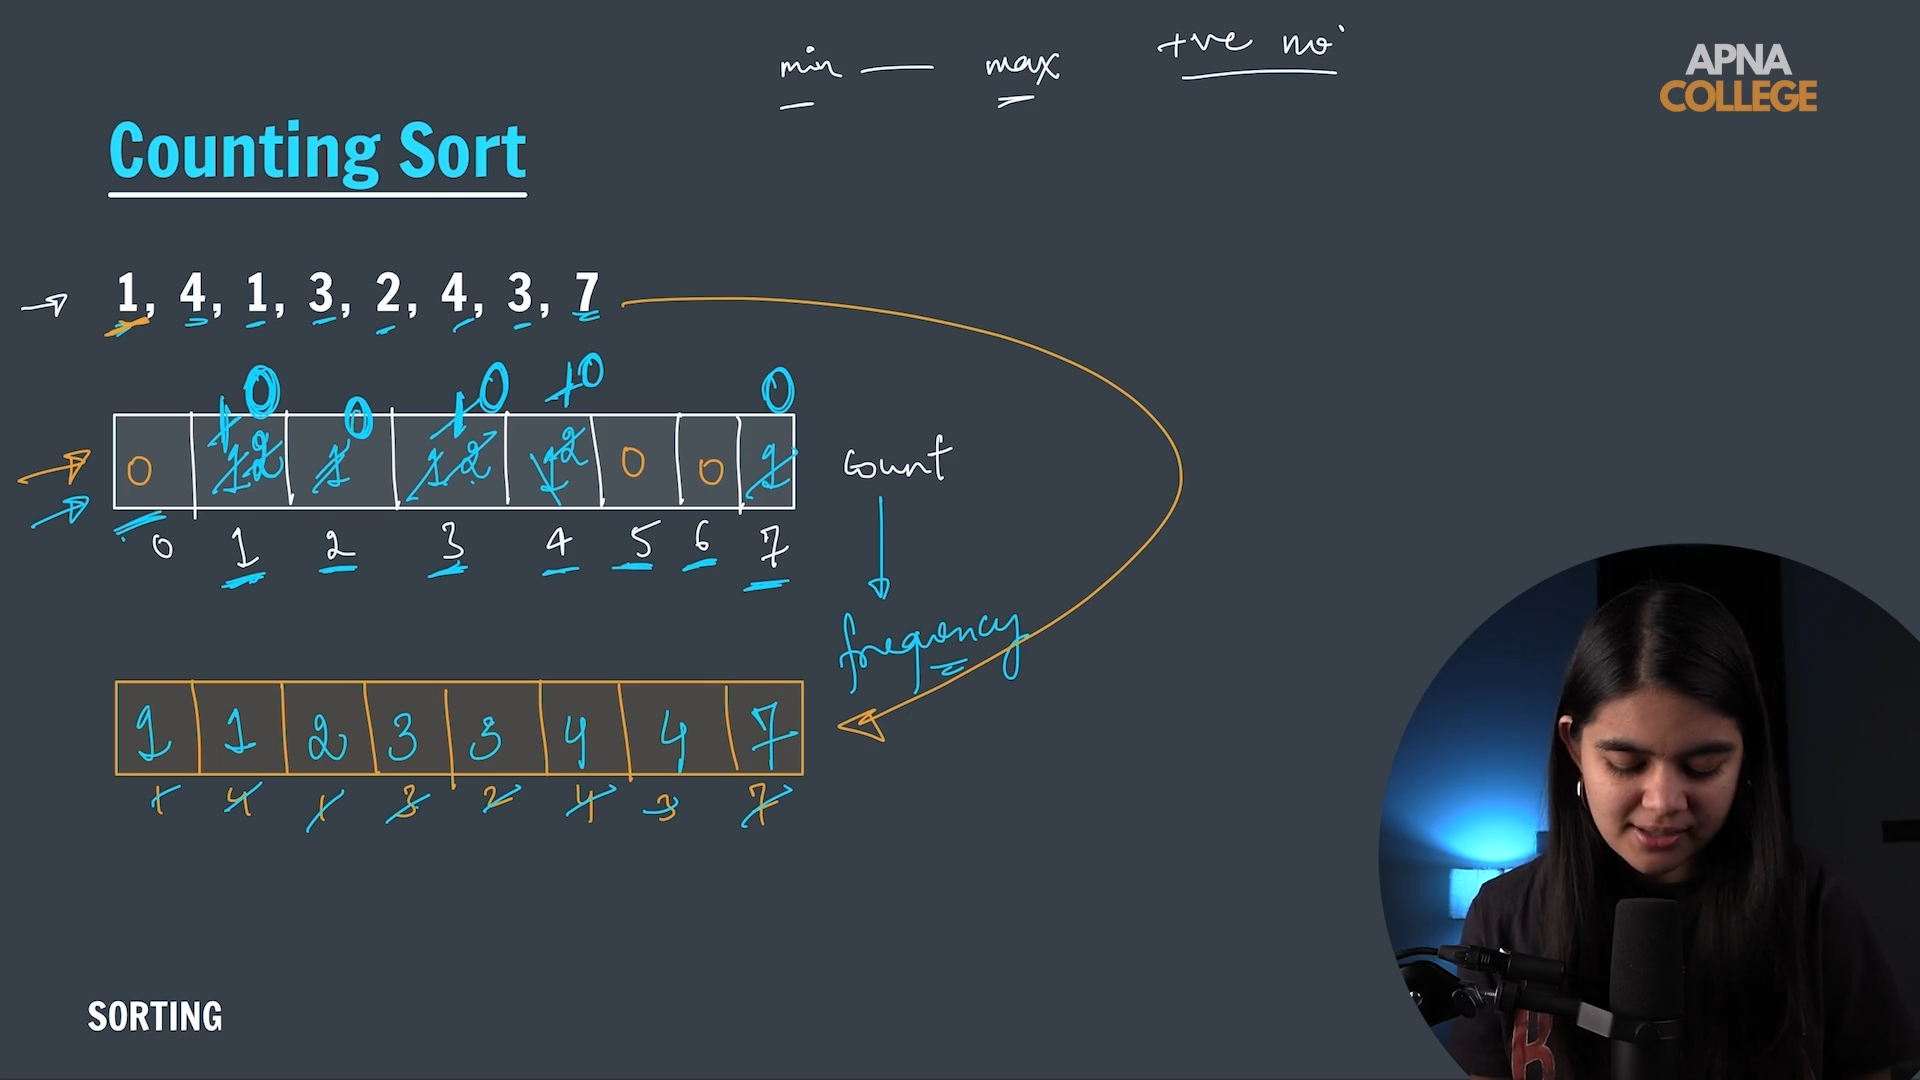 min — max +ve no.
APNA
COLLEGE
Counting Sort
→ 1, 4, 1, 3, 2, 4, 3, 7
1 0 0 1 0 1 0 0
0 1 2 1 1 2 1 2 0 0 1 count
0 1 2 3 4 5 6 7
frequency
1 1 2 3 3 4 4 7
1 4 1 3 2 4 3 7
SORTING